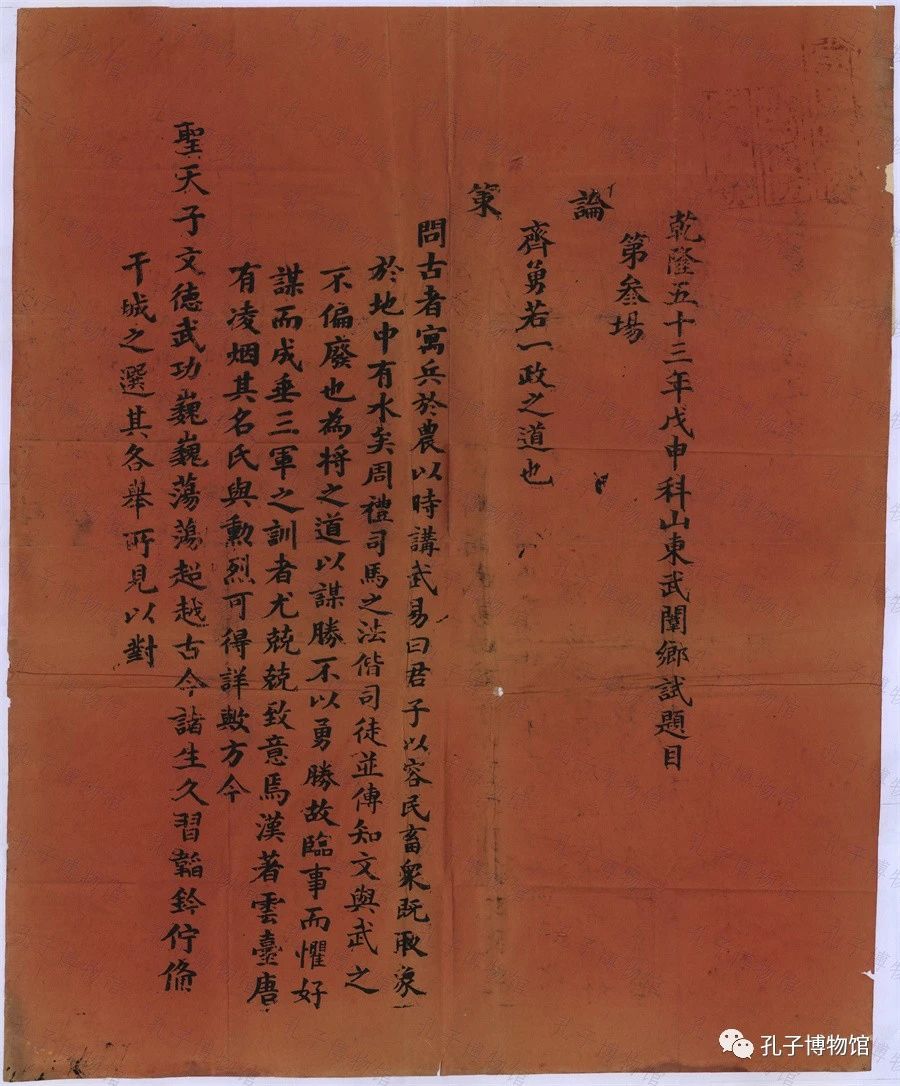 乾隆五十三年戊申科山東武闈鄉試題目
第叁場
論
齊勇若一政之道也
策
問古者寓兵於農以時講武易曰君子以容民畜衆既取象
於地中有水矣周禮司馬之法偕司徒並傳知文與武之
不偏廢也為將之道以謀勝不以勇勝故臨事而懼好
謀而成垂三軍之訓者尤兢兢致意焉漢著雲臺唐
有凌烟其名氏與勳烈可得詳歟方今
聖天子文德武功巍巍蕩蕩超越古今諸生久習韜鈐佇俻
干城之選其各舉所見以對
孔子博物馆